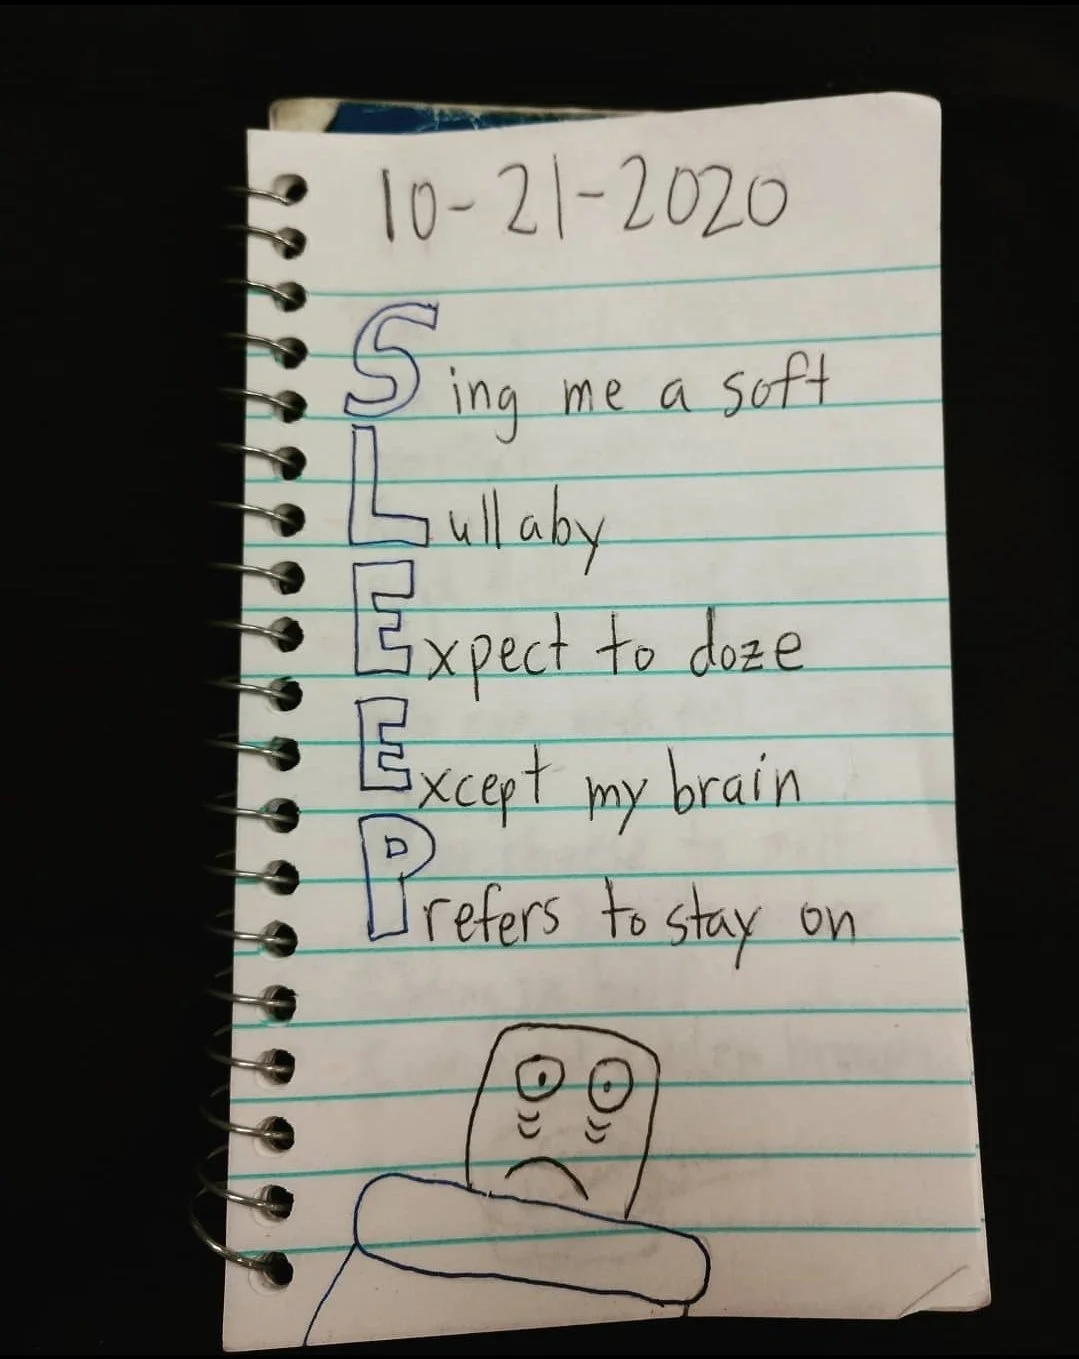 10-21-2020
Sing me a soft
Lullaby
Expect to doze
Except my brain
Prefers to stay on